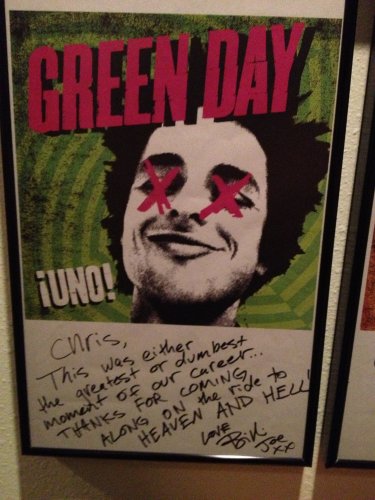 GREEN DAY
¡UNO!
Chris,
This was either
the greatest or dumbest
moment of our career...
THANKS FOR COMING
ALONG ON the ride to
HEAVEN AND HELL
LOVE
Billie
Joe
XX